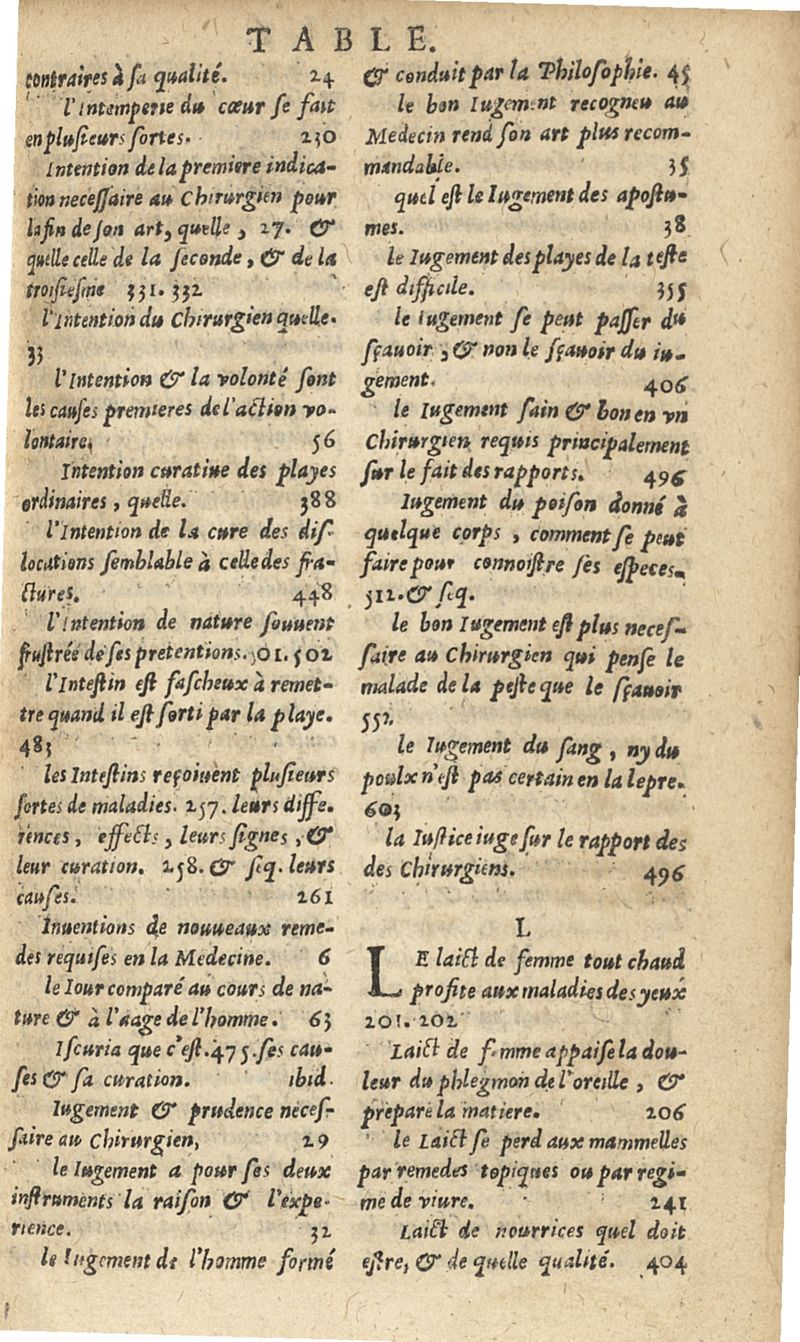 TABLE.
contraires à sa qualité. 24
l'Intemperie du cœur se fait
en plusieurs sortes. 230
Intention de la premiere indica-
tion necessaire au Chirurgien pour
la fin de son art, quelle, 27. &
quelle celle de la seconde, & de la
troisiesme 331. 332
l'Intention du Chirurgien quelle.
33
l'Intention & la volonté sont
les causes premieres de l'action vo-
lontaire, 56
Intention curatiue des playes
ordinaires, quelle. 388
l'Intention de la cure des dis-
locations semblable à celle des fra-
ctures. 448
l'Intention de nature souuent
frustrée de ses pretentions. 501. 502
l'Intestin est fascheux à remet-
tre quand il est sorti par la playe.
483
les Intestins reçoiuent plusieurs
sortes de maladies. 257. leurs diffe-
rences, effects, leurs signes, &
leur curation. 258. & seq. leurs
causes. 261
Inuentions de nouueaux reme-
des requises en la Medecine. 6
le Iour comparé au cours de na-
ture & à l'aage de l'homme. 63
Iscuria que c'est. 475. ses cau-
ses & sa curation. ibid.
Iugement & prudence neces-
saire au Chirurgien, 29
le Iugement a pour ses deux
instruments la raison & l'expe-
rience. 32
le Iugement de l'homme formé
& conduit par la Philosophie. 45
le bon Iugement recogneu au
Medecin rend son art plus recom-
mandable. 35
quel est le Iugement des apostu-
mes. 38
le Iugement des playes de la teste
est difficile. 355
le Iugement se peut passer du
sçauoir, & non le sçauoir du iu-
gement. 406
le Iugement sain & bon en vn
Chirurgien requis principalement
sur le fait des rapports. 496
Iugement du poison donné à
quelque corps, comment se peut
faire pour connoistre ses especes.
512. & seq.
le bon Iugement est plus neces-
saire au Chirurgien qui pense le
malade de la peste que le sçauoir
552
le Iugement du sang, ny du
poulx n'est pas certain en la lepre.
603
la Iustice iuge sur le rapport des
des Chirurgiens. 496
L
LE laict de femme tout chaud
profite aux maladies des yeux
201. 202
Laict de femme appaise la dou-
leur du phlegmon de l'oreille, &
prepare la matiere. 206
le Laict se perd aux mammelles
par remedes topiques ou par regi-
me de viure. 241
Laict de nourrices quel doit
estre, & de quelle qualité. 404